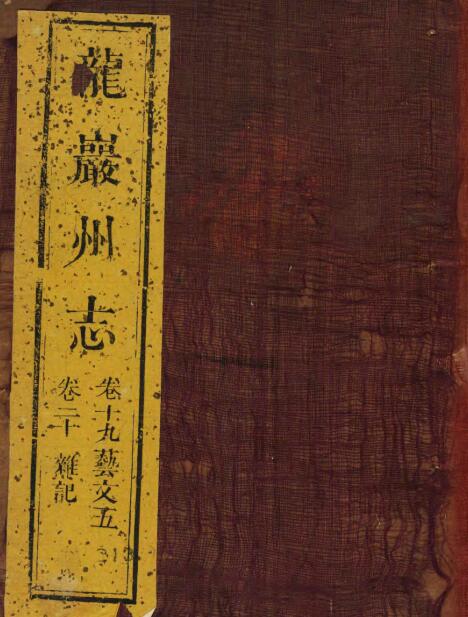 龍巖州志
卷十九藝文五
卷二十雜記
313